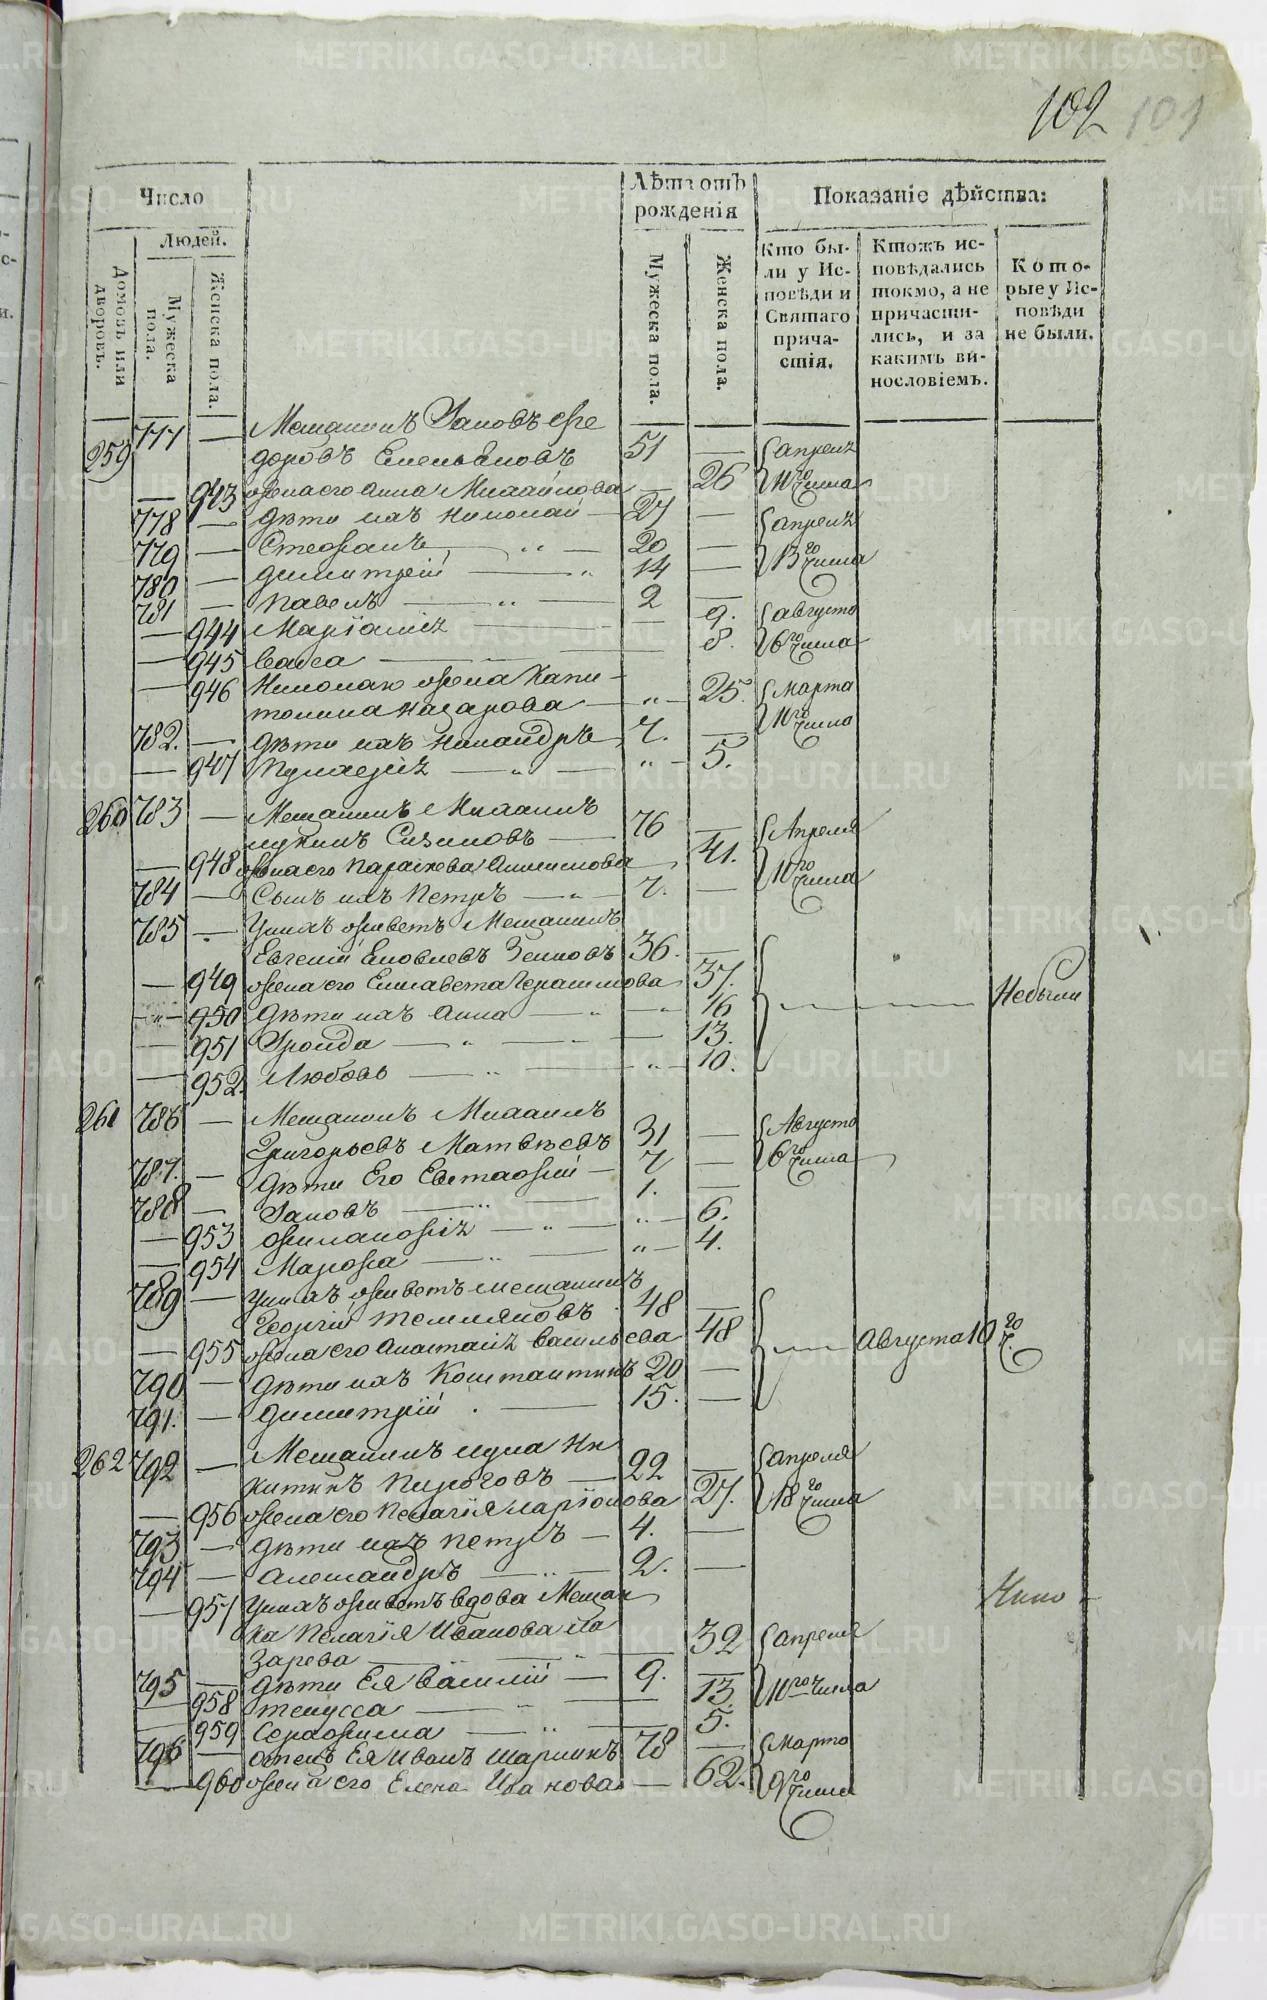 102 101
Число
Лѣта отъ рожденія
Показаніе дѣйства:
Людей.
Домовъ или дворовъ.
Мужеска пола.
Женска пола.
Мужеска пола.
Женска пола.
Кто бы-
ли у Ис-
повѣди и
Святаго
прича-
стія.
Ктожъ ис-
повѣдались
токмо, а не
причасти-
лись, и за
какимъ ви-
нословіемъ.
Кото-
рые у Ис-
повѣди
не были.
259 777 — Мещанинъ Іаковъ Ѳе
доровъ Емельяновъ 51 — Апреля
— 943 жена его Анна Михайлова — 26 11го числа
778 — дѣти ихъ Николай — 27 — апреля
779 — Стефанъ 20 — 13го числа
780 — Димитрій 14 —
781 — Павелъ 2 —
— 944 Маріамія — 9. августа
— 945 — 8. 6го числа
— 946 Николаю жена Капи-
толина Назарова „ 25. Марта
782. — дѣти ихъ Никандръ 7. — 11го числа
— 947 „ 5.
260 783 — Мещанинъ Михаилъ
Лукинъ Сизиковъ 76 — Апреля
— 948 жена его Параскева — 41. 11го числа
784 — Сынъ ихъ Петръ 7. —
785 — У нихъ живетъ Мещанинъ
Евгеній Яковлевъ 36. —
— 949 жена его Елисавета Герасимова 37. Небыли
— „ — 950 Дѣти ихъ Анна „ 16
— 951 — 13.
— 952. Любовь „ 10.
261 786 — Мещанинъ Михаилъ
Григорьевъ Матвѣевъ 31 — Августа
787. — дѣти Его Евстафій 7 — 6го числа
788 — Іаковъ 1. —
— 953 „ 6.
— 954 Марфа „ 4.
789 — У нихъ живетъ мещанинъ
Георгій 48 —
— 955 жена его Анастасія Васильева 48 Августа 10го ч.
790 — дѣти ихъ Константинъ 20 —
791. — Димитрій 15. —
262 792 — Мещанинъ Лука Ни
китинъ Пироговъ 22 — апреля
— 956 жена его Пелагія Ларіонова 27. 18го числа
793 — дѣти ихъ Петръ 4. —
794 — Александръ 2. —
— 957 У нихъ живетъ вдова Мещан
ка Пелагія Иванова Ла
зарева — 32 апреля
795 — дѣти Ея Василій 9. — 11го числа
— 958 — 13.
— 959 Серафима — 5.
796 — отецъ Ея Иванъ 78 — Марта
— 960 жена его Елена Иванова — 62. 9го числа
METRIKI.GASO-URAL.RU